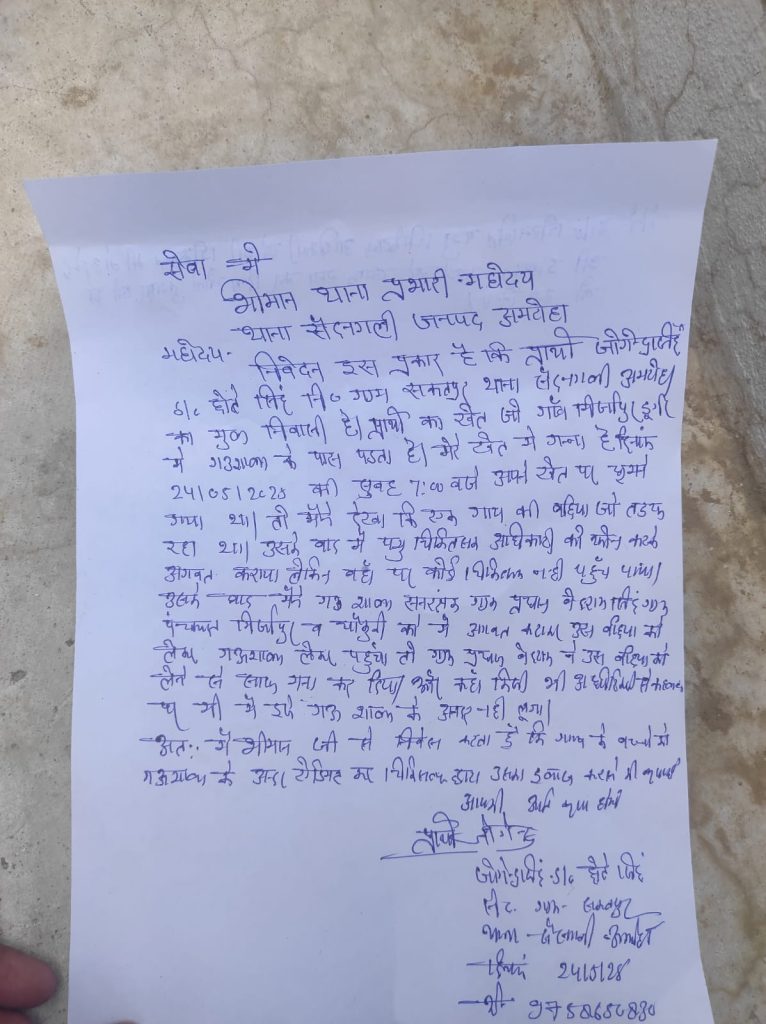 सेवा में
श्रीमान थाना प्रभारी महोदय
थाना सैदनगली जनपद अमरोहा
महोदय-
निवेदन इस प्रकार है कि प्रार्थी जोगेन्द्र सिंह
S/o छोटे सिंह नि० ग्राम सकतपुर थाना सैदनगली अमरोहा
का मुल निवासी है। प्रार्थी का खेत जो गाँव मिर्जापुर डूंगर
में गऊशाला के पास पडता है। मेरे खेत मे गन्ना है दिनांक
24/05/2028 को सुवह 7:00 वजे अपने खेत पर घुमने
गया था। तो मैने देखा कि एक गाय की वछिया जो तडफ
रहा था। उसके वाद मैं पशु चिकित्सक अधिकारी को फोन करके
अवगत कराया लेकिन वहाँ पर कोई चिकित्सक नही पहुँच पाया।
उसके वाद मैने गऊ शाला ग्राम प्रधान सिंह ग्राम
पंचायत मिर्जापुर व को मे अवगत कराया उस वछिया को
लेकर गऊशाला लेकर पहुंचा तो ग्राम प्रधान ने उस वछिया को
लेने से साफ मना कर दिया और कहाँ किसी भी अधिकारियों से
पर भी मै इसे गऊ शाला के अन्दर नही लूगा।
अतः मैं श्रीमान जी से निवेदन करता हूँ कि गाय के वच्चे को
गऊशाला के अन्दर कर चिकित्सक द्वारा उसका इलाज कराने की कृपा करें
आपकी अति कृपा होगी
प्रार्थी जोगेन्द्र
जोगेन्द्र सिंह S/o छोटे सिंह
नि०. ग्राम- सकतपुर
थाना - सैदनगली अमरोहा
दिनांक 24/5/28
मो- 9758650830